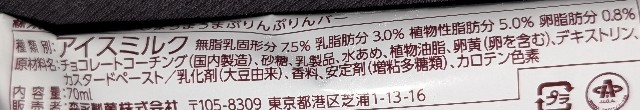 まぷりんぷりんバー
種類別:アイスミルク 無脂乳固形分 7.5% 乳脂肪分 3.0% 植物性脂肪分 5.0% 卵脂肪分 0.8%
原材料名:チョコレートコーチング(国内製造)、砂糖、乳製品、水あめ、植物油脂、卵黄(卵を含む)、デキストリン、
カスタードペースト/乳化剤(大豆由来)、香料、安定剤(増粘多糖類)、カロテン色素
内容量:70ml
販売者:森永製菓株式会社 〒105-8309 東京都港区芝浦1-13-16
プラ